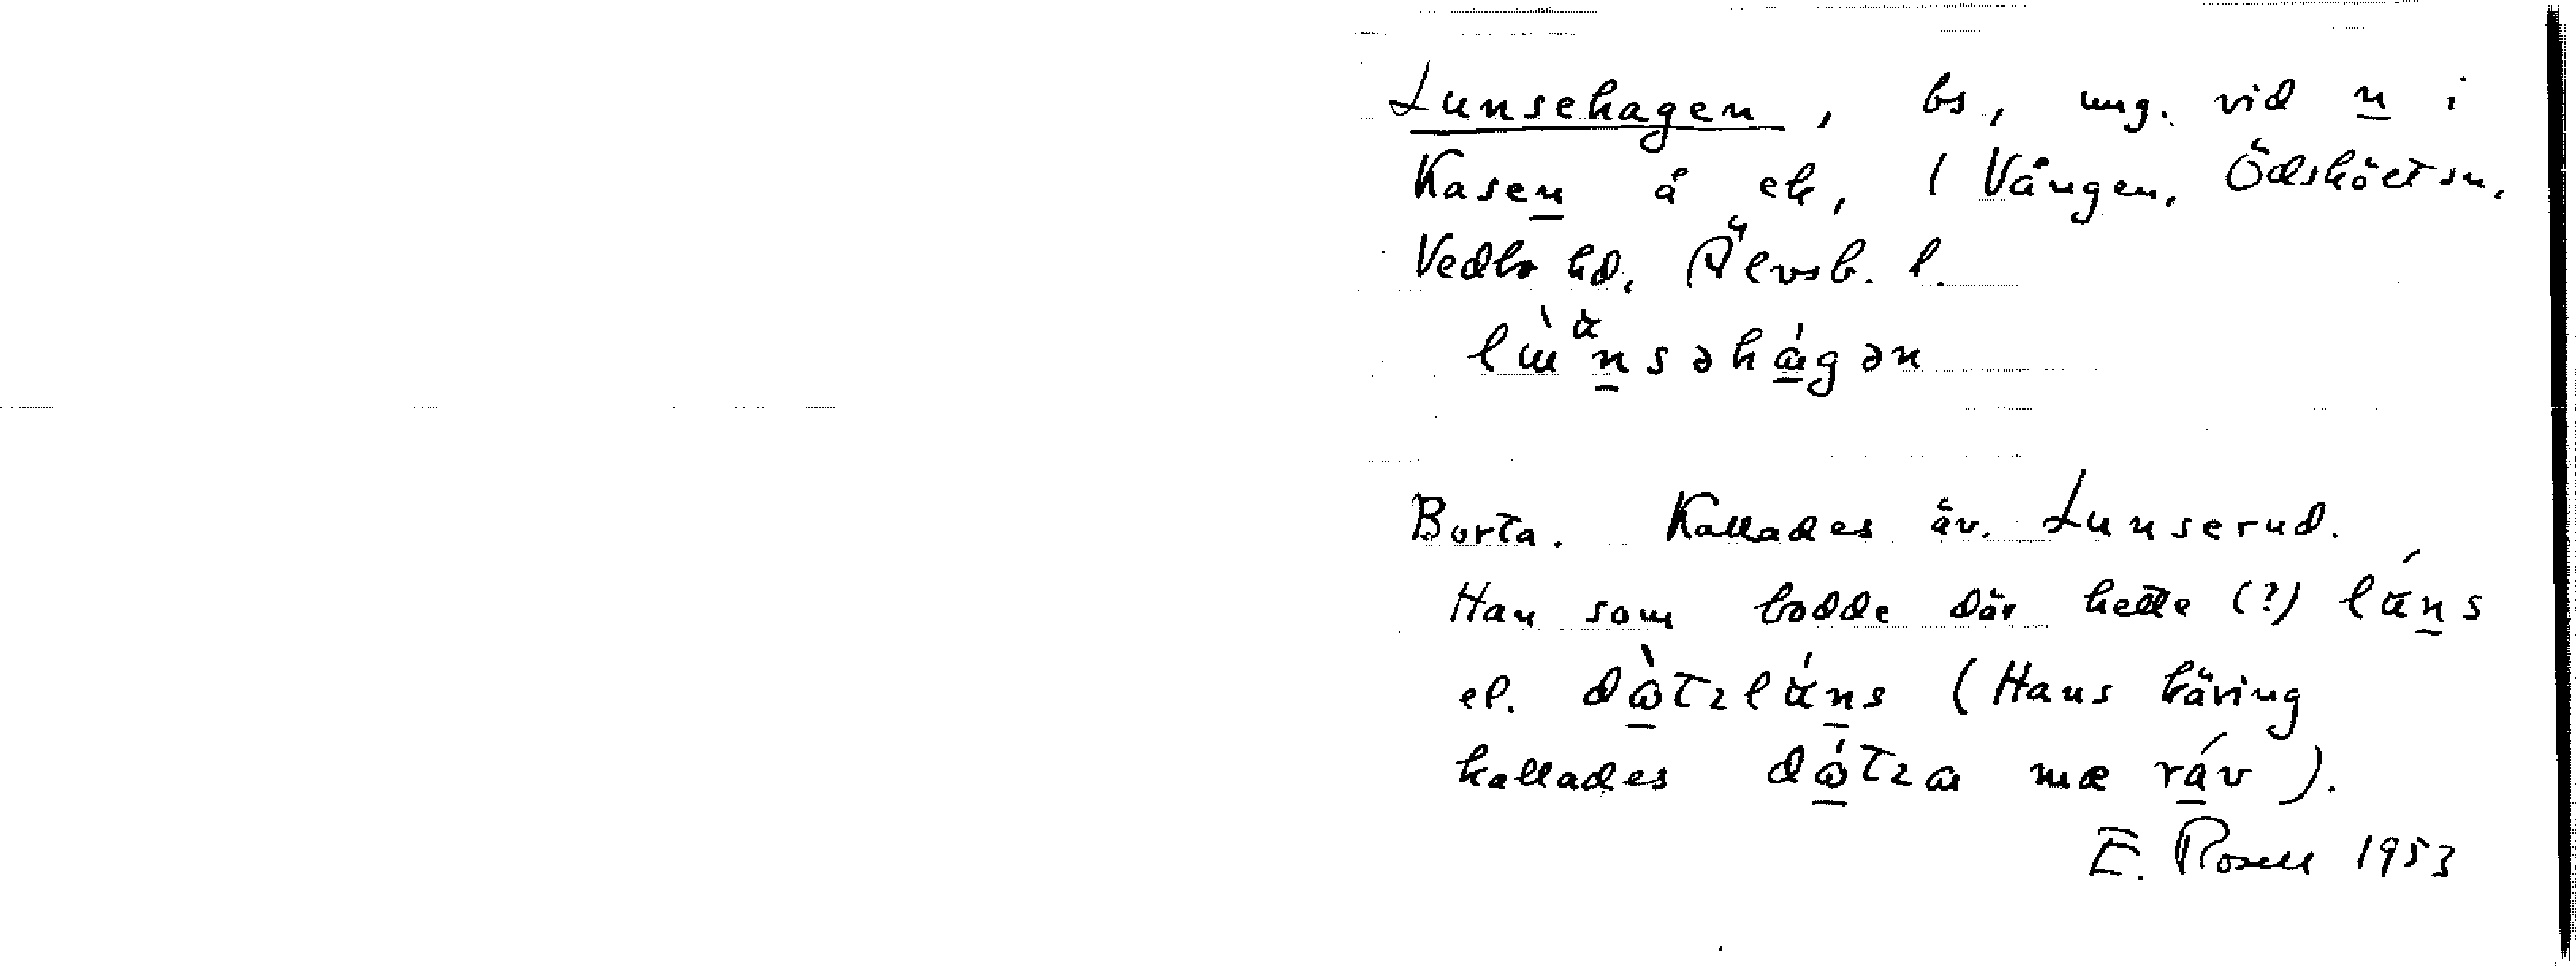 Lunsehagen, bs, ung. vid n i
Kasen å ek, (Vången, Ödsköltsn,
Vedbo hd, Älvsb. l.
Borta. Kallades äv. Lunserud.
Han som bodde där hette (?) láns
el. (Hans käring
kallades mæ ráv).
E. Rosell 1953